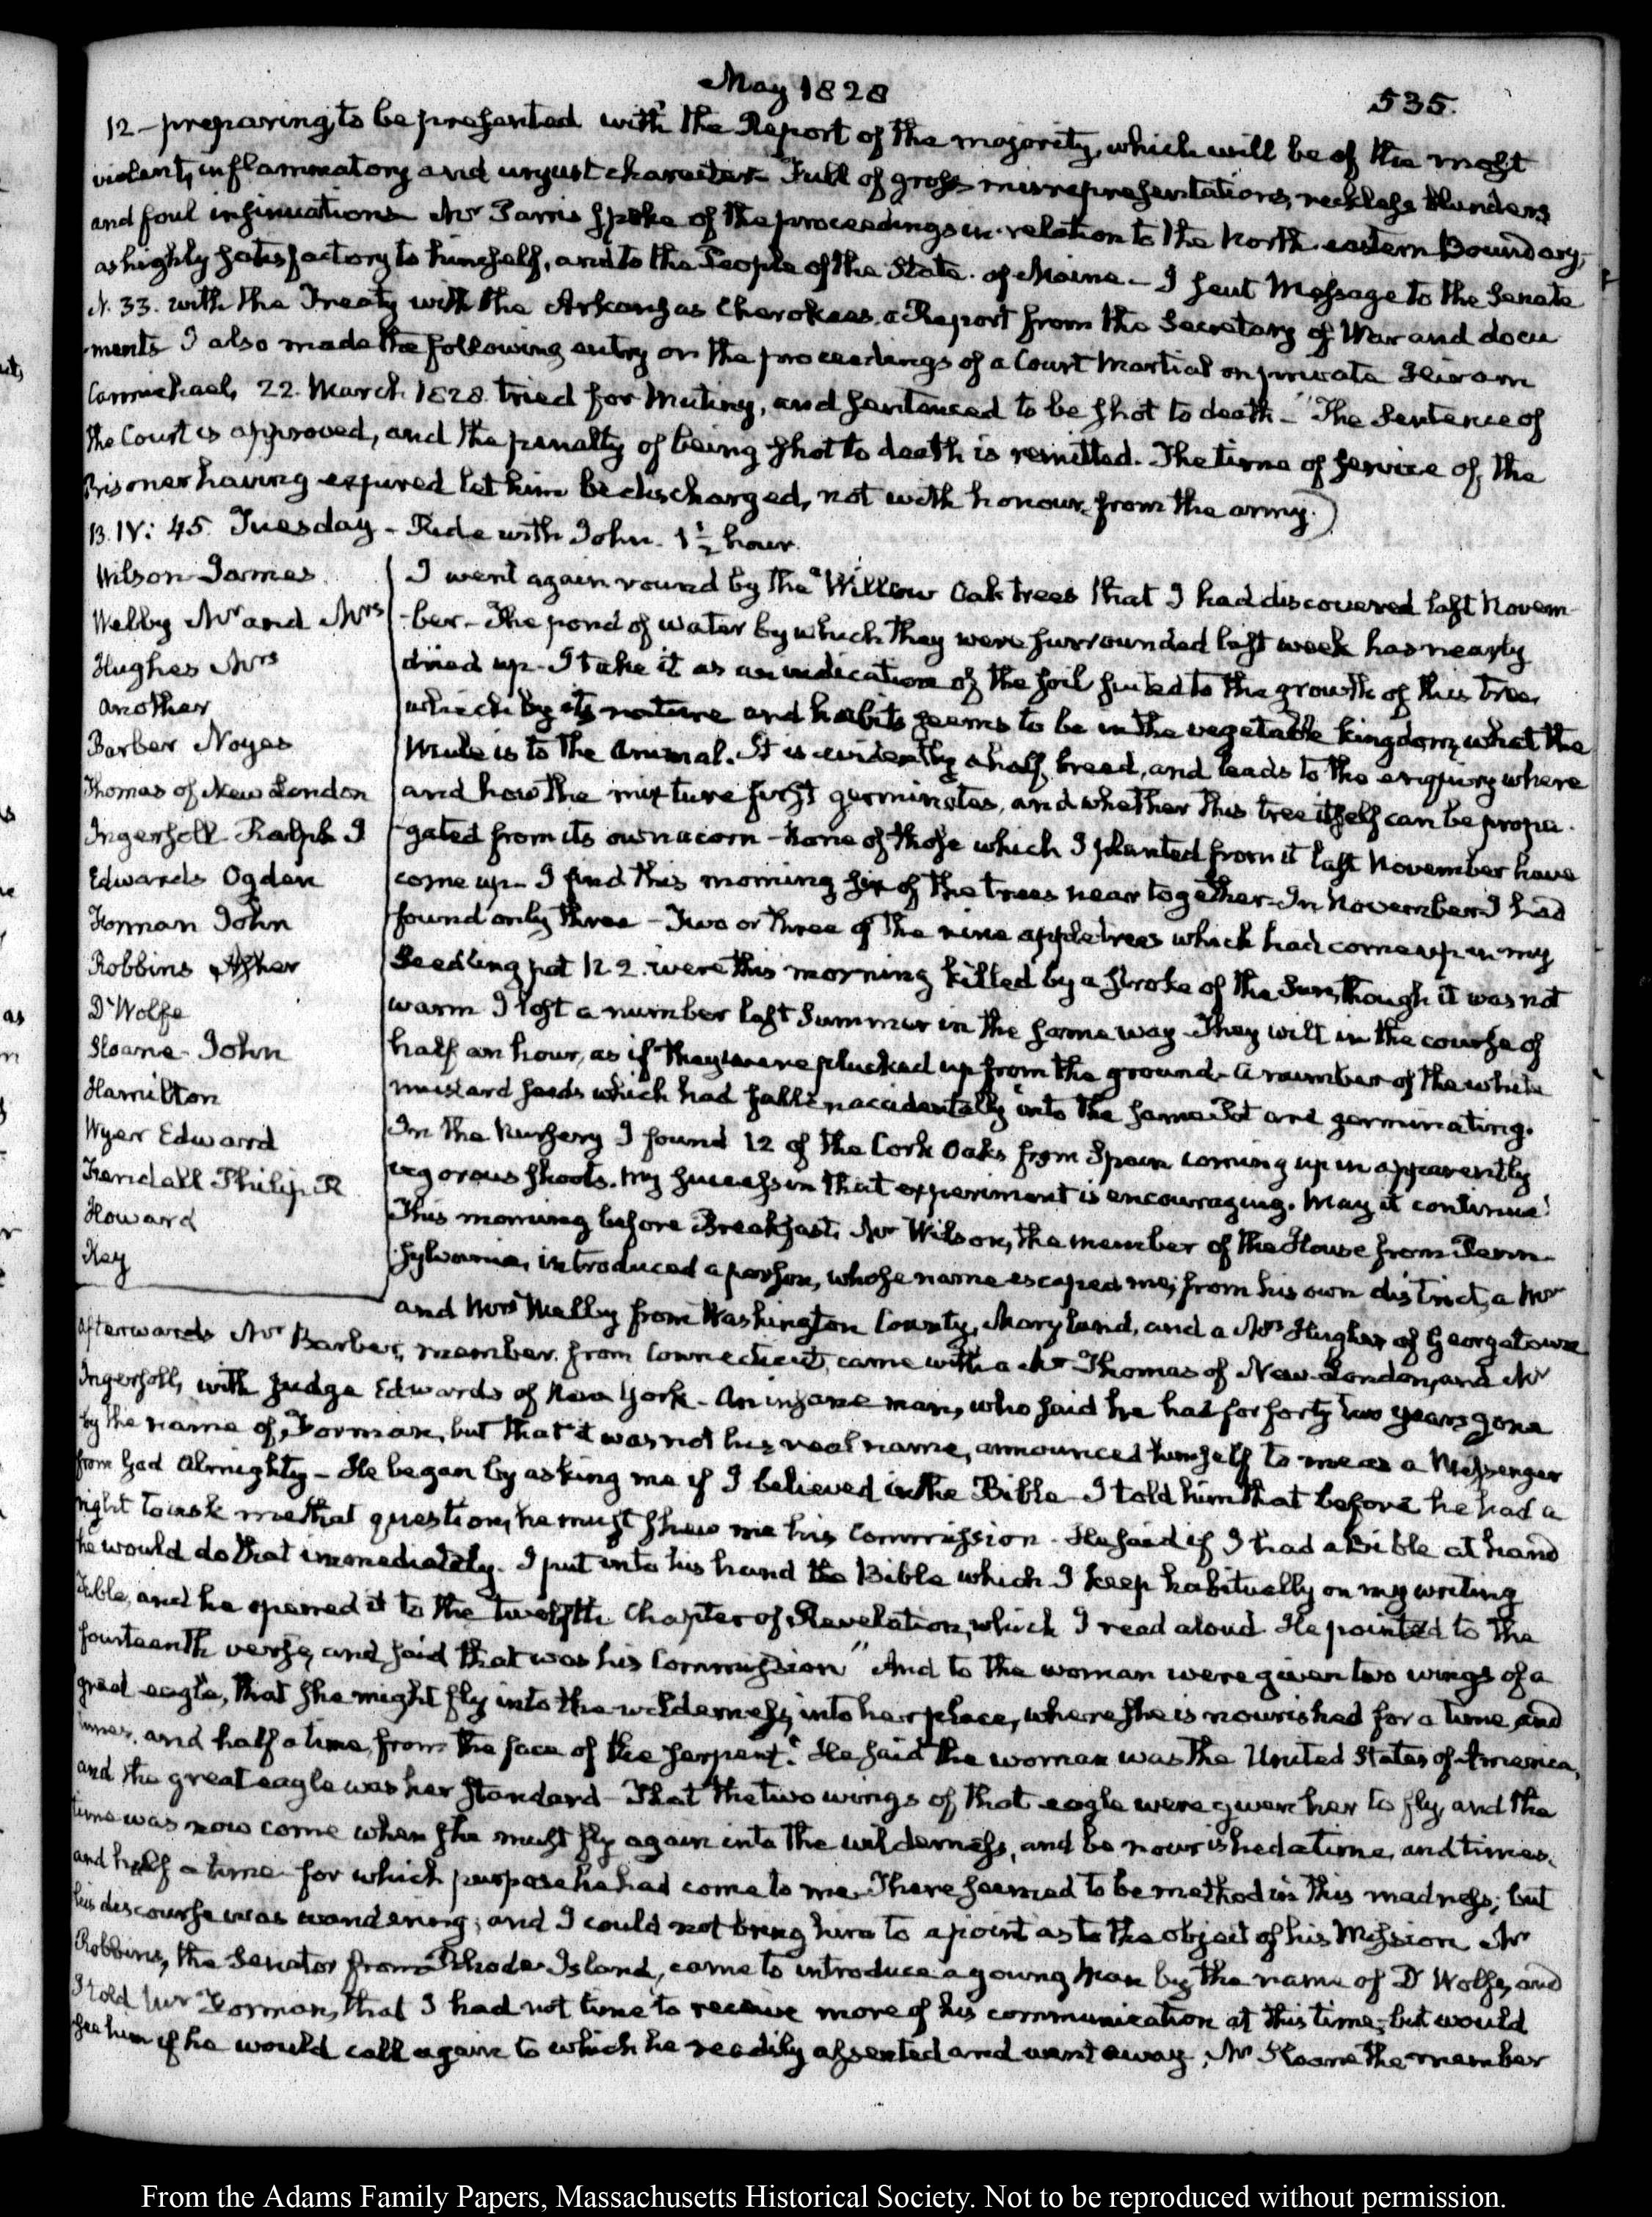 May 1828
535.
12 - preparing, to be presented with the Report of the majority, which will be of the most
violent, inflammatory and unjust character Full of gross misrepresentations, reckless blunders
and foul insinuations Mr Parris spoke of the proceedings in relation to the North eastern Boundary,
as highly satisfactory to himself, and to the People of the State of Maine - I sent Message to the Senate
N. 33. with the Treaty with the Arkansas Cherokees a Report from the Secretary of War and docu
-ments I also made the following entry on the proceedings of a Court Martial on private Hiram
Carmichael, 22. March 1828 tried for Mutiny, and sentenced to be shot to death - "The Sentence of
the Court is approved, and the penalty of being shot to death is remitted. The time of service of the
Prisoner having expired let him be discharged, not with honour from the army.)
13. IV: 45. Tuesday - Ride with John. 1½ hour.
Wilson James
Welby Mr and Mrs
Hughes Mrs
another
Barber Noyes
Thomas of New London
Ingersoll Ralph I
Edwards Ogden
Forman John
Robbins Asher
D'Wolfe
Sloane John
Hamilton
Wyer Edward
Fendall Philip R
Howard
Key
I went again round by the Willow Oak trees that I had discovered last Novem-
-ber - The pond of water by which they were surrounded last week has nearly
dried up - I take it as an indication of the soil suited to the growth of this tree,
which by its nature and habits seems to be in the vegetable kingdom, what the
Mule is to the animal. It is evidently a half, breed, and leads to the enquiry where
and how the mixture first germinates, and whether this tree itself can be propa-
-gated from its own acorn - None of those which I planted from it last November have
come up - I find this morning six of the trees near together - In November I had
found only three - Two or three of the nine appletrees which had come up in my
Seedling pot N. 2. were this morning killed by a stroke of the Sun, though it was not
warm I lost a number last Summer in the same way - They wilt in the course of
half an hour, as if they were plucked up from the ground - a number of the white
mustard seeds which had fallen accidentally into the same Pot and germinating.
In the Nursery I found 12 of the Cork Oaks from Spain coming up in apparently
vigorous shoots. My success in that experiment is encouraging. May it continue!
This morning before Breakfast, Mr Wilson, the member of the House from Penn-
-sylvania, introduced a person, whose name escaped me, from his own district, a Mr
and Mrs Welby from Washington County, Maryland, and a Mrs Hughes of Georgetown
afterwards Mr Barber, member from Connecticut, came with a Mr Thomas of New-London, and Mr
Ingersoll, with Judge Edwards of New York - An insane man, who said he had for forty two years gone
by the name of Forman, but that it was not his real name, announced himself to me as a Messenger
from God Almighty - He began by asking me if I believed in the Bible - I told him that before he had a
right to ask me that question, he must shew me his Commission - He said if I had a Bible at hand
he would do that immediately. I put into his hand the Bible which I keep habitually on my writing
Table, and he opened it to the twelfth Chapter of Revelation, which I read aloud He pointed to the
fourteenth verse, and said that was his Commission "And to the woman were given two wings of a
great eagle, that she might fly into the wilderness, into her place, where she is nourished for a time, and
times, and half a time, from the face of the serpent." He said the woman was the United States of America,
and the great eagle was her Standard - That the two wings of that eagle were given her to fly, and the
time was now come when she must fly again into the wilderness, and be nourished a time, and times,
and half a time - for which purpose he had come to me. There seemed to be method in this madness; but
his discourse was wandering; and I could not bring him to a point as to the object of his Mission Mr
Robbins, the Senator from Rhode-Island, came to introduce a young man by the name of D'Wolfe, and
I told Mr Forman, that I had not time to receive more of his communication at this time; but would
see him if he would call again to which he readily assented and went away, Mr Sloane the member
From the Adams Family Papers, Massachusetts Historical Society. Not to be reproduced without permission.